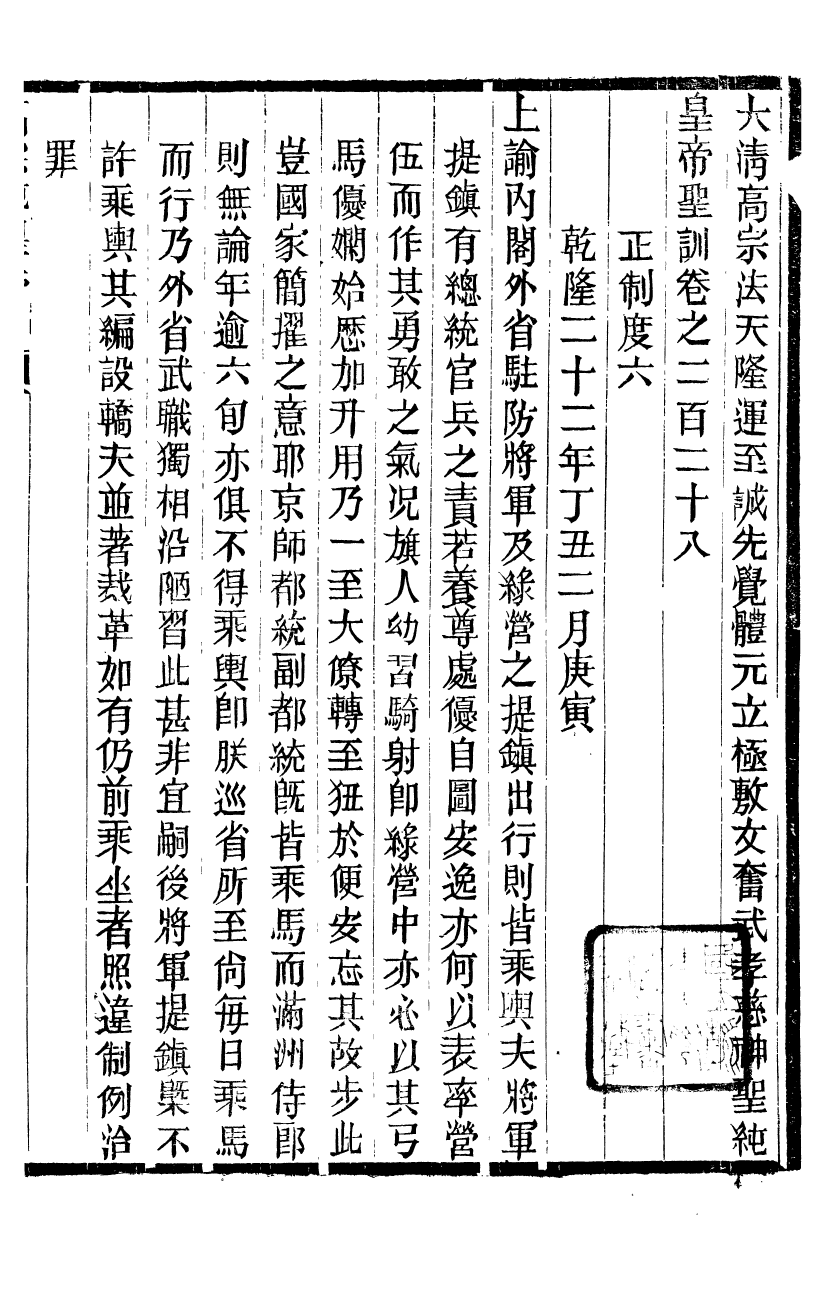 大清高宗法天隆運至誠先覺體元立極敷文奮武孝慈神聖純
皇帝聖訓卷之二百二十八
正制度六
乾隆二十二年丁丑二月庚寅
上諭內閣外省駐防將軍及綠營之提鎮出行則皆乘輿夫將軍
提鎮有總統官兵之責若養尊處優自圖安逸亦何以表率營
伍而作其勇敢之氣况旗人幼習騎射卽綠營中亦必以其弓
馬優嫻始歷加升用乃一至大僚轉至狃於便安忘其故步此
豈國家簡擢之意耶京師都統副都統旣皆乘馬而滿洲侍郎
則無論年逾六旬亦俱不得乘輿卽朕巡省所至尙每日乘馬
而行乃外省武職獨相沿陋習此甚非宜嗣後將軍提鎮槩不
許乘輿其編設轎夫並著裁革如有仍前乘坐者照違制例治
罪